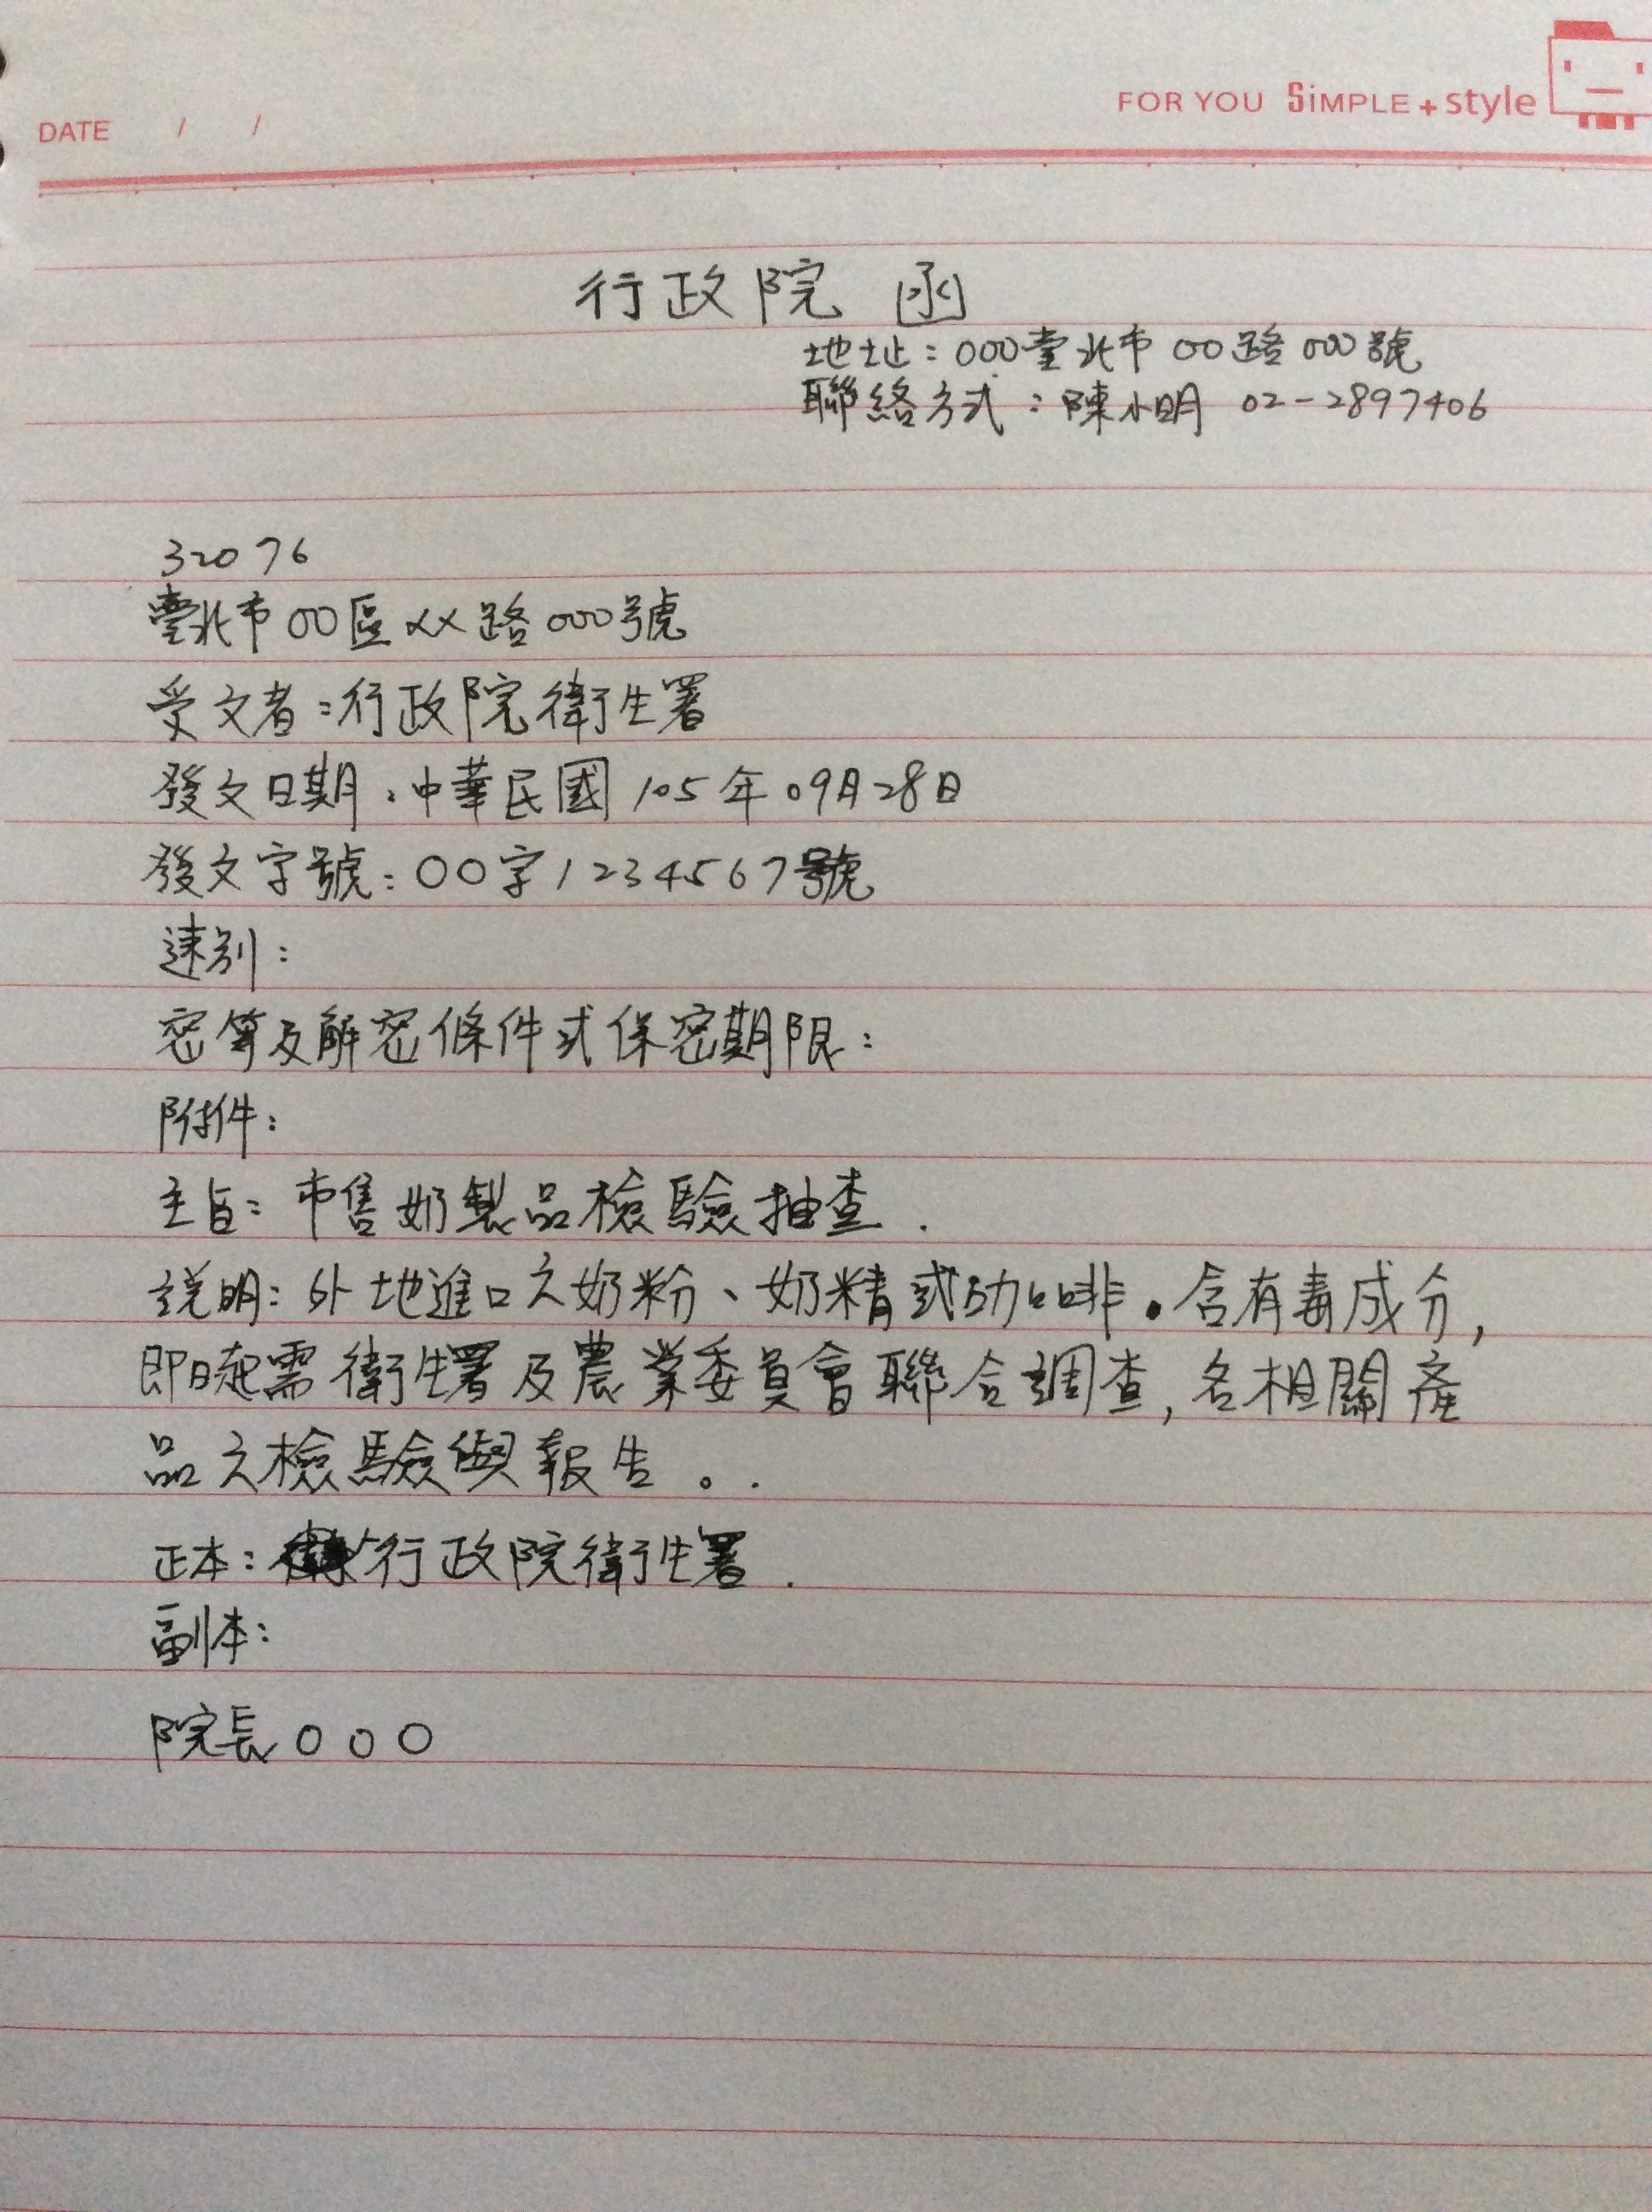 DATE / /
FOR YOU SiMPLE + style
行政院 函
地址：000臺北市00路000號
聯絡方式：陳小明 02-2897406
32076
臺北市00區XX路000號
受文者：行政院衛生署
發文日期：中華民國105年09月28日
發文字號：00字1234567號
速別：
密等及解密條件或保密期限：
附件：
主旨：市售奶製品檢驗抽查.
說明：外地進口之奶粉、奶精或咖啡。含有毒成分，
即日起需衛生署及農業委員會聯合調查，各相關產
品之檢驗與報告。.
正本：行政院衛生署.
副本：
院長000